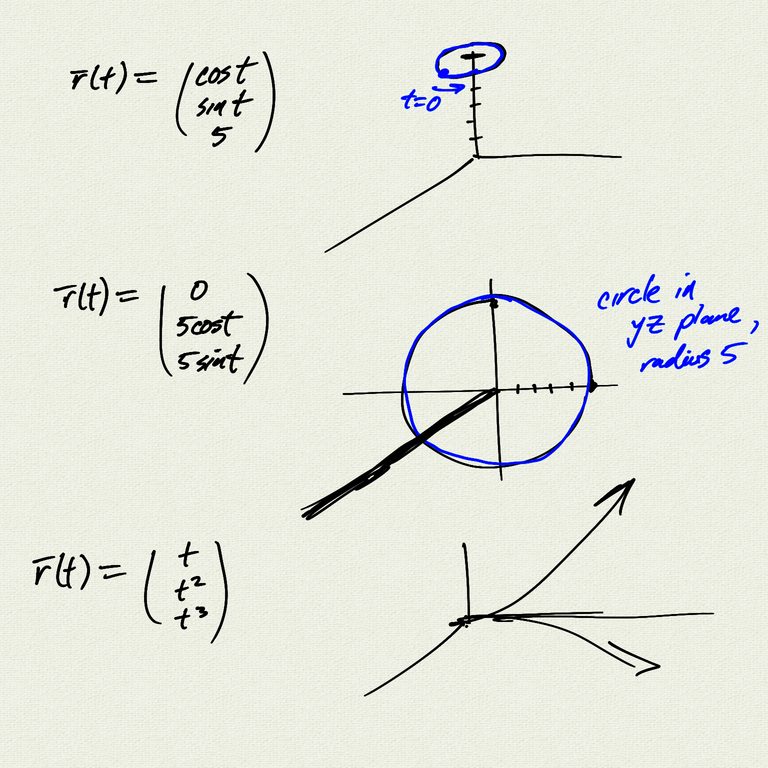 r̄(t) = (cost
sint
5)
t=0
r̄(t) = (0
5cost
5sint)
circle in
yz plane,
radius 5
r̄(t) = (t
t²
t³)